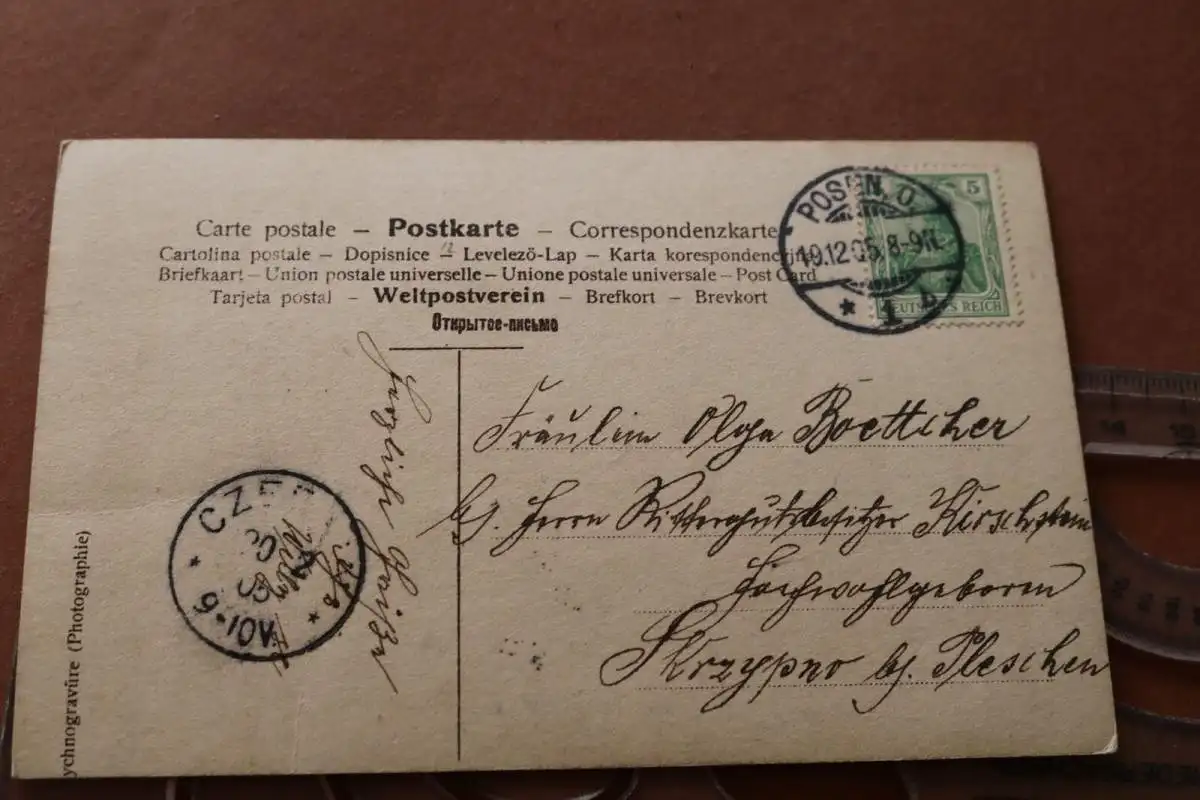 Carte postale – Postkarte – Correspondenzkarte
Cartolina postale – Dopisnice – Levelezö-Lap – Karta korespondencyjna
Briefkaart – Union postale universelle – Unione postale universale – Post Card
Tarjeta postal – Weltpostverein – Brefkort – Brevkort
Открытое-письмо
POSEN. O.
19.12.05. 8-9N.
* 1 b
5
DEUTSCHES REICH
Fräulein Olga Boettcher
bj. Herrn Rittergutsbesitzer Kirschstein
Hochwohlgeboren
Skrzypno bj. Pleschen
Herzliche Grüße
* CZE
6-10V
ychnogravüre (Photographie)